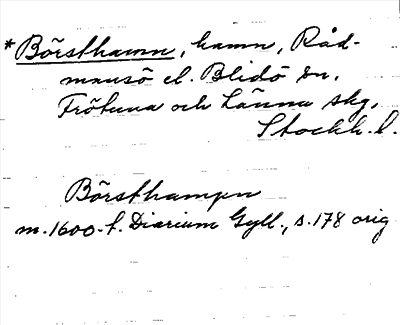 *Börsthamn, hamn, Råd-
mansö el. Blidö sn,
Frötuna och Länna skg,
Stockh. l.
Börsthampn
m. 1600-t. Diarium Gyll., s. 178 orig